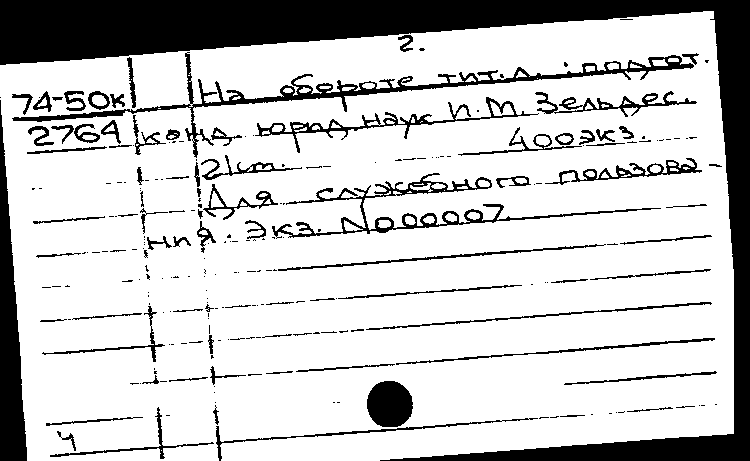 2.
74-50к На обороте тит.л.: подгот.
2764 канд. юрид. наук И.М. Зельдес.
21 см. 400 экз.
Для служебного пользова-
ния. Экз. N000007.
Ч